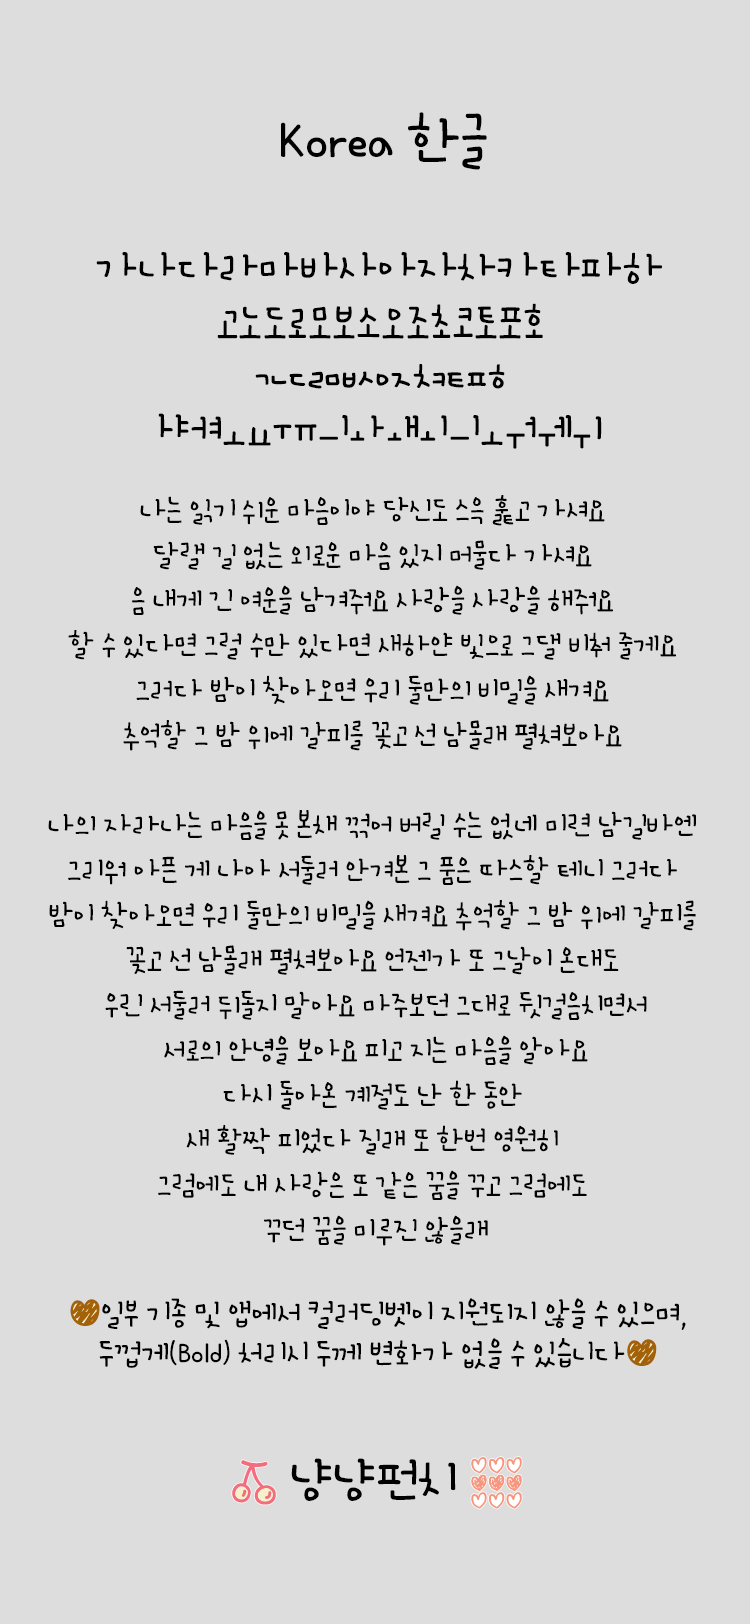 Korea 한글
가나다라마바사아자차카타파하
고노도로모보소오조초코토포호
ㄱㄴㄷㄹㅁㅂㅅㅇㅈㅊㅋㅌㅍㅎ
ㅑㅕㅕㅗㅛㅜㅠㅡㅣㅘㅙㅚㅢㅗㅝㅞㅟ
나는 읽기 쉬운 마음이야 당신도 스윽 훑고 가셔요
달랠 길 없는 외로운 마음 있지 머물다 가셔요
음 내게 긴 여운을 남겨줘요 사랑을 사랑을 해줘요
할 수 있다면 그럴 수만 있다면 새하얀 빛으로 그댈 비춰 줄게요
그러다 밤이 찾아오면 우리 둘만의 비밀을 새겨요
추억할 그 밤 위에 갈피를 꽂고 선 남몰래 펼쳐보아요
나의 자라나는 마음을 못 본채 꺾어 버릴 수는 없네 미련 남길바엔
그리워 아픈 게 나아 서둘러 안겨본 그 품은 따스할 테니 그러다
밤이 찾아오면 우리 둘만의 비밀을 새겨요 추억할 그 밤 위에 갈피를
꽂고 선 남몰래 펼쳐보아요 언젠가 또 그날이 온대도
우린 서둘러 뒤돌지 말아요 마주보던 그대로 뒷걸음치면서
서로의 안녕을 보아요 피고 지는 마음을 알아요
다시 돌아온 계절도 난 한 동안
새 활짝 피었다 질래 또 한번 영원히
그럼에도 내 사랑은 또 같은 꿈을 꾸고 그럼에도
꾸던 꿈을 미루진 않을래
일부 기종 및 앱에서 컬러딩벳이 지원되지 않을 수 있으며,
두껍게(Bold) 처리시 두께 변화가 없을 수 있습니다
냥냥펀치